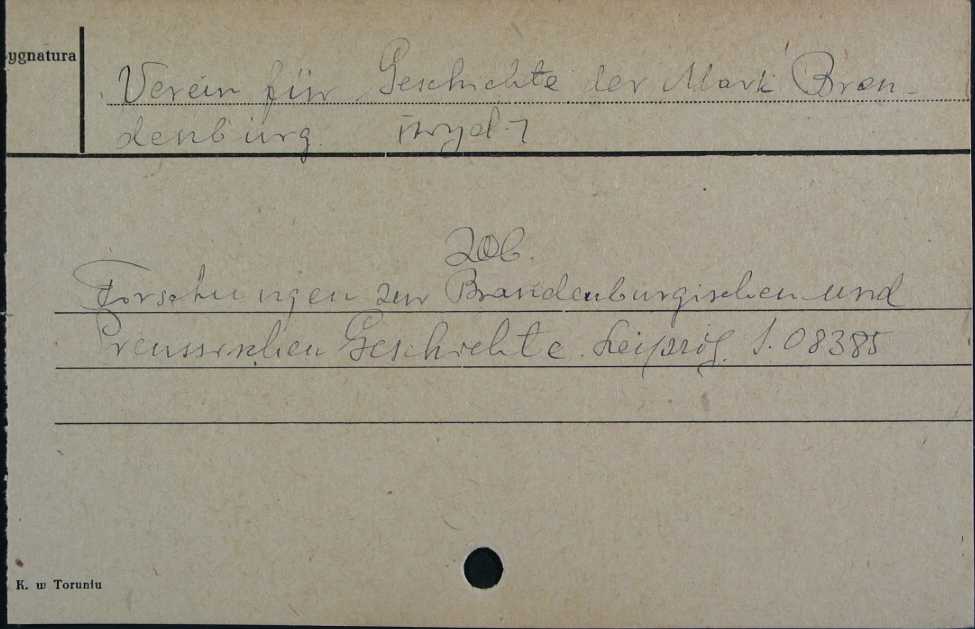 Sygnatura
Verein für Geschichte der Mark Bran-
denburg. [wyd.]
zob.
Forschungen zur Brandenburgischen und
Preussischen Geschichte. Leipzig. S.08385
K. w Toruniu